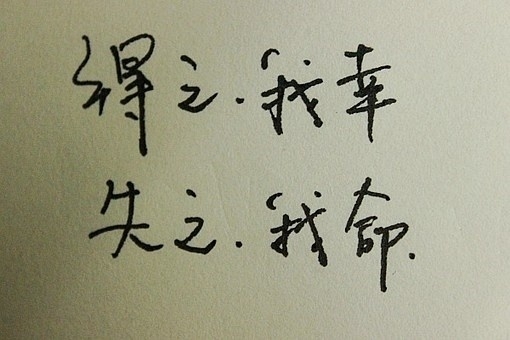 得之.我幸
失之.我命.